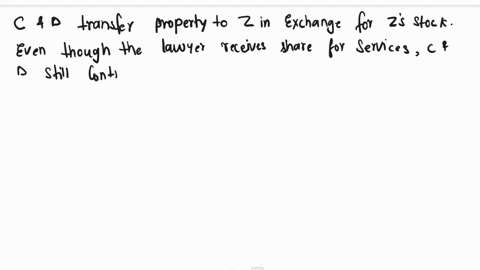 C & D transfer property to Z in Exchange for Z's stock.
Even though the lawyer receives share for services, C &
D still Cont